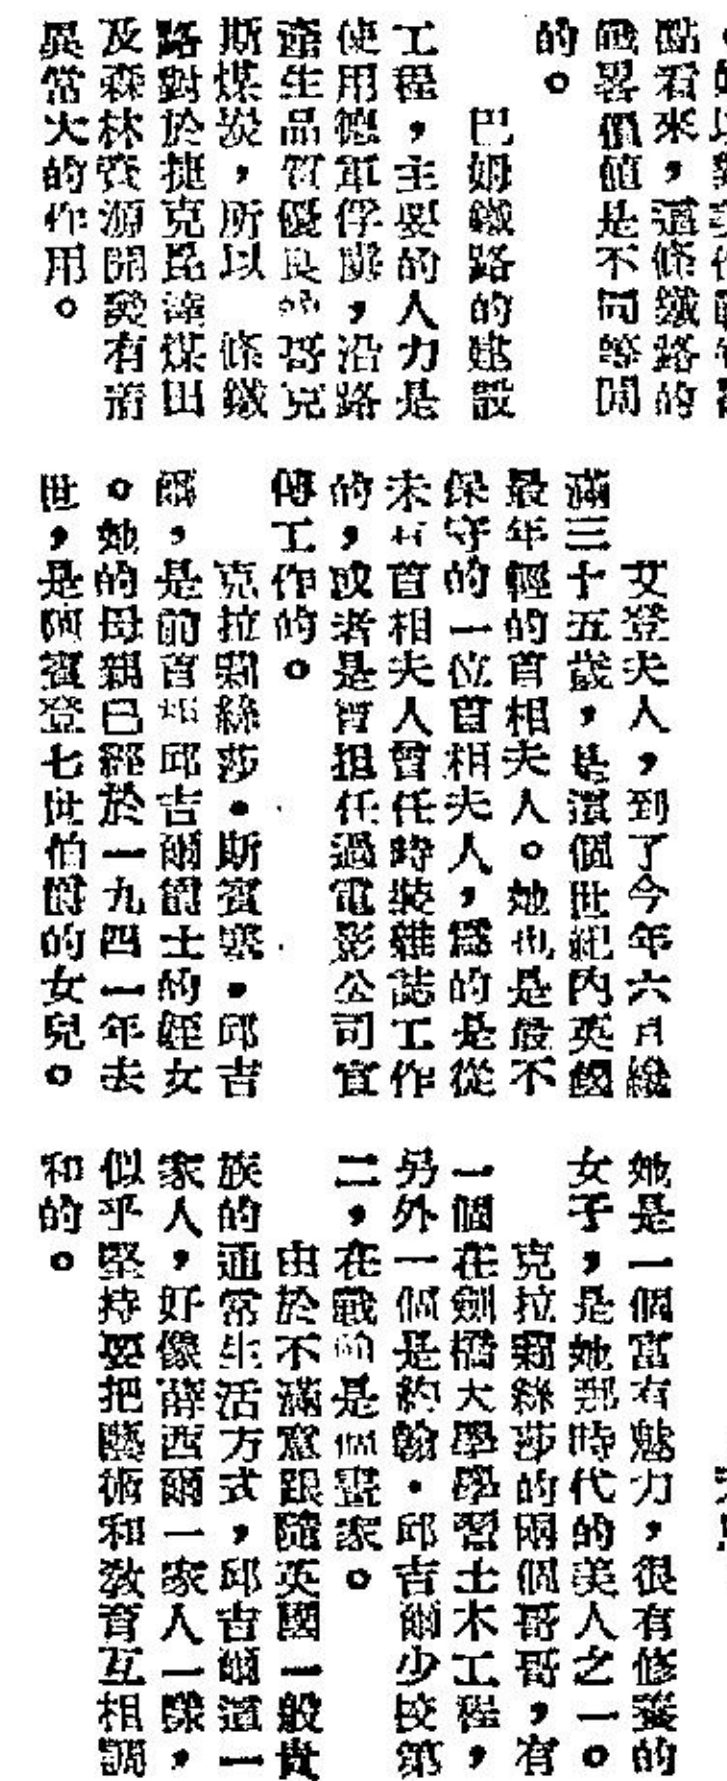 點看來,這條鐵路的
戰畧價值是不同等閒
的。
巴姆鐵路的建設
工程,主要的人力是
使用德軍俘虜,沿路
產生品質優良的哥克
斯煤炭,所以 條鐵
路對於捷克昆達煤田
及森林資源開發有着
異常大的作用。
艾登夫人,到了今年六月纔
滿三十五歲,是這個世紀內英國
最年輕的首相夫人。她也是最不
保守的一位首相夫人,爲的是從
未有首相夫人曾任時裝雜誌工作
的,或者是曾担任過電影公司宣
傳工作的。
克拉莉絲莎•斯賓塞•邱吉
爾,是前首相邱吉爾爵士的姪女
。她的母親已經於一九四一年去
世,是阿賓登七世伯爵的女兒。
她是一個富有魅力,很有修養的
女子,是她那時代的美人之一。
克拉莉絲莎的兩個哥哥,有
一個在劍橋大學學習土木工程,
另外一個是約翰•邱吉爾少校第
二,在戰前是個畫家。
由於不滿意跟隨英國一般貴
族的通常生活方式,邱吉爾這一
家人,好像薛西爾一家人一樣,
似乎堅持要把藝術和敎育互相調
和的。